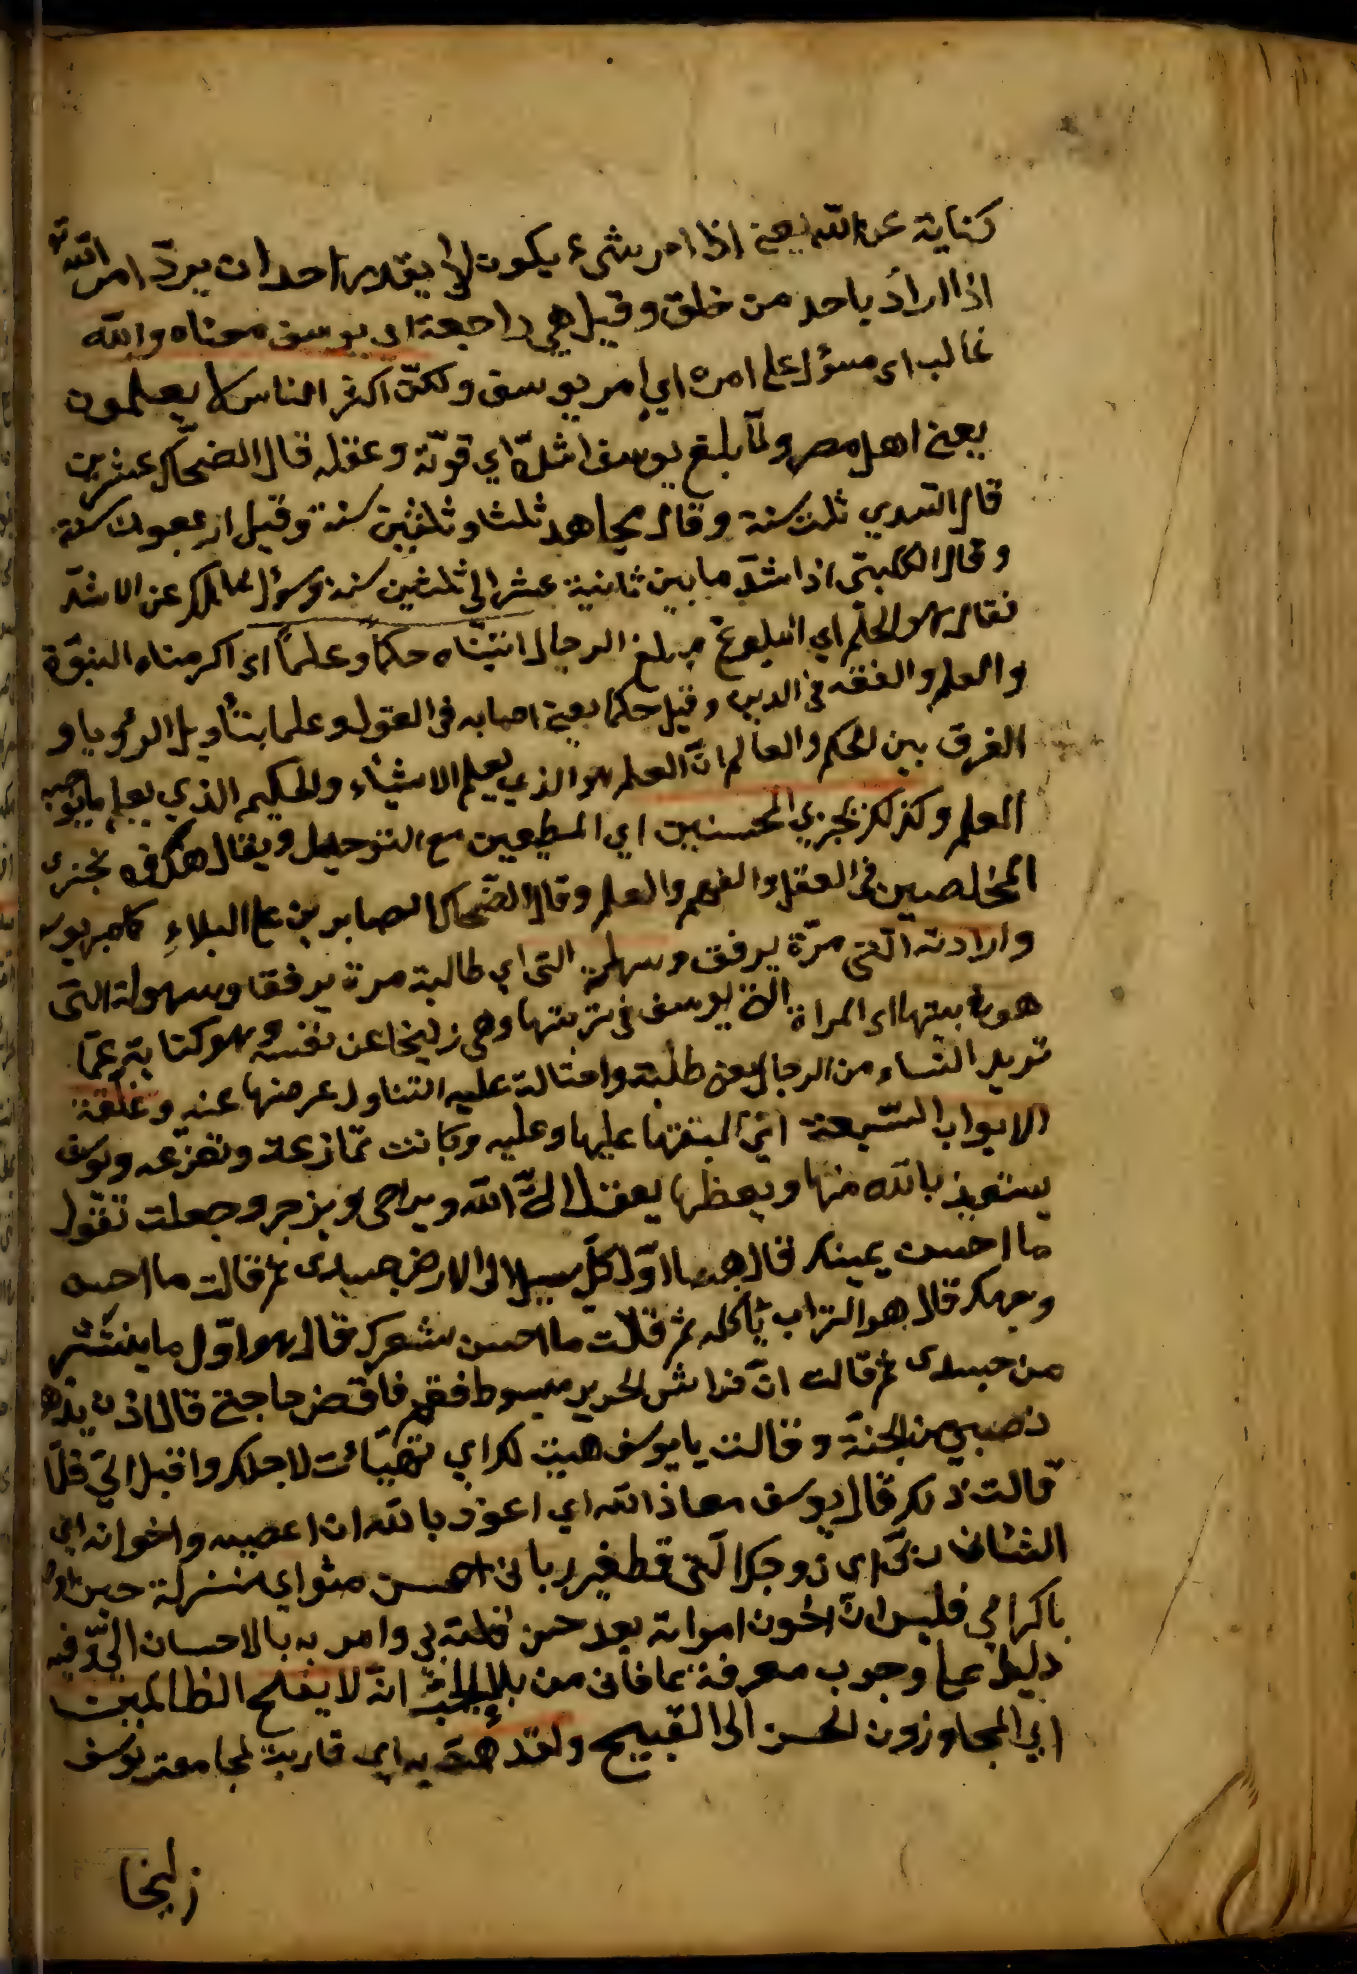 كناية عن الله يعني اذا امر بشيء يكون لا يقدر احد ان يردّ امر الله تع
اذا اراد باحد من خلقه وقيل هي راجعة الى يوسف معناه والله
غالب اى مسؤل على امره اي امر يوسف ولكنّ اكثر الناس لا يعلمون
يعني اهل مصر ولمّا بلغ يوسف اشدّه اي قوّته وعقله قال الضحّاك عشرين
قال السدي ثلثين سنة وقال مجاهد ثلثا وثلثين سنة وقيل اربعون سنة
وقال الكلبي اشدّ ما بين ثمانية عشر الى ثلثين سنة وسؤل مالك عن الاشدّ
فقال هو الحلم اي البلوغ مبلغ الرجال اتيناه حكما وعلمًا اى اكرمناه النبوّة
والعلم والفقه في الدين وقيل حكما يعني اصابه في القول وعلما بتأويل الرؤيا و
الفرق بين الحكم والعالم انّ العلم هو الذي يعلم الاشياء والحكيم الذي يعلم
العلم وكذلك نجزي المحسنين اي المطيعين مع التوحيد ويقال هكذا نجزى
المخلصين في العقل والفهم والعلم وقال الضّحاك الصابرين على البلاء كاصبر يوسف
وارادته التى مرّة برفق وسهلة التى اي طالبة مرة برفقا وسهولة التى
هو في بيتها اى المراة يوسف في تربيتها وهي زليخا عن نفسه وهو كناية عمّا
تريد النساء من الرجال يعني طلبته واحتالة عليه التناول غرضها عنه وغلّقة
الابواب السبعة عليها وعليه وكانت تمازعة وتفزعه ويوسف
يستعيذ بالله منها ويعظها ويزجر وجعلت تقول
ما احسن عينك قال هما اوّل كلّ يسيل الى الارض جسدى ثم قالت ما احسن
وجهك قال هو التراب يأكله ثم قالت ما احسن شعرك قال هو اوّل ما ينتثر
من جسدى ثم قالت انّ فراش الحرير مبسوط فقم فاقض حاجتي قال اذن يذهب
نصيبي من الجنة وقالت يا يوسف هيت لك اي تهيّأت لاجلك واقبل اليّ فلمّا
قالت ذلك قال يوسف معاذ الله اي اعوذ بالله ان اعصيه واخوانه اي
الشان ربّي اى زوجك الّتى قطفير ربانى احسن مثواي منزلة حين
باكرامي فليس ان اخون امراته بعد حسن بي وامر به بالاحسان اليّ وفيه
دليل على وجوب معرفة عافانى من بلاء انه لا يفلح الظالمين
اي المجاوزون الحسن الى القبيح ولقد همّت به اي قاربة لمجامعته يوسف
زليخا